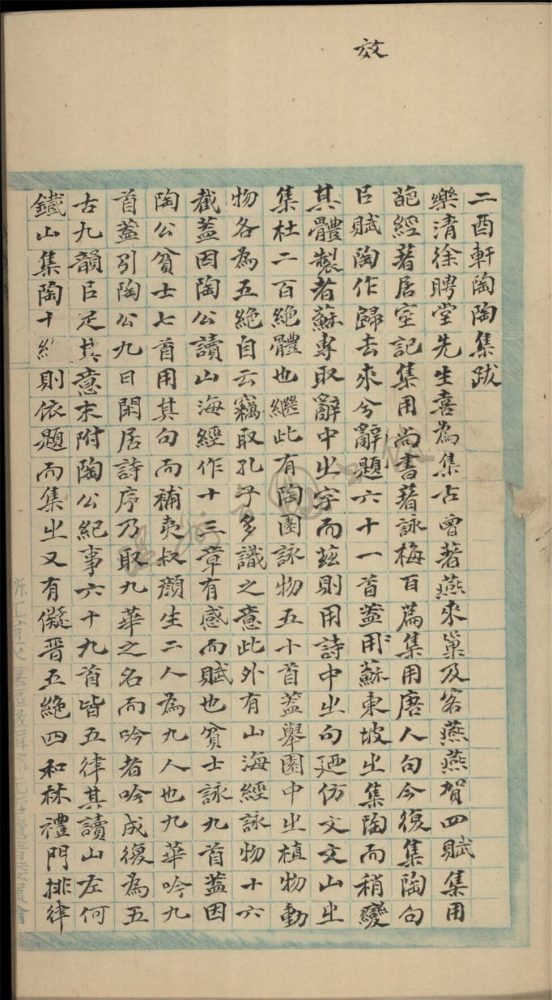 效
二酉軒陶陶集跋
樂清徐聘堂先生喜為集古曾著燕來巢及客燕燕賀四賦集用
葩經著居室記集用尚書著詠梅百篇集用唐人句今復集陶句
㠯賦陶作歸去來兮辭題六十一首葢用蘇東坡㞢集陶而稍變
其體製者蘇專取辭中㞢字而茲則用詩中㞢句廼仿文文山㞢
集杜二百絕體也繼此有陶園詠物五十首蓋舉園中㞢植物動
物各為五絕自云竊取孔子多識之意此外有山海經詠物十六
截蓋因陶公讀山海經作十三章有感而賦也貧士詠九首蓋因
陶公貧士七首用其句而補夷叔顏生二人為九人也九華吟九
首蓋引陶公九日閑居詩序乃取九華之名而吟者吟成復為五
古九韻㠯足其意末附陶公紀事六十九首皆五律其讀山左何
鐵山集陶十絕則依題而集㞢又有儗晋五絕四和林禮門排律